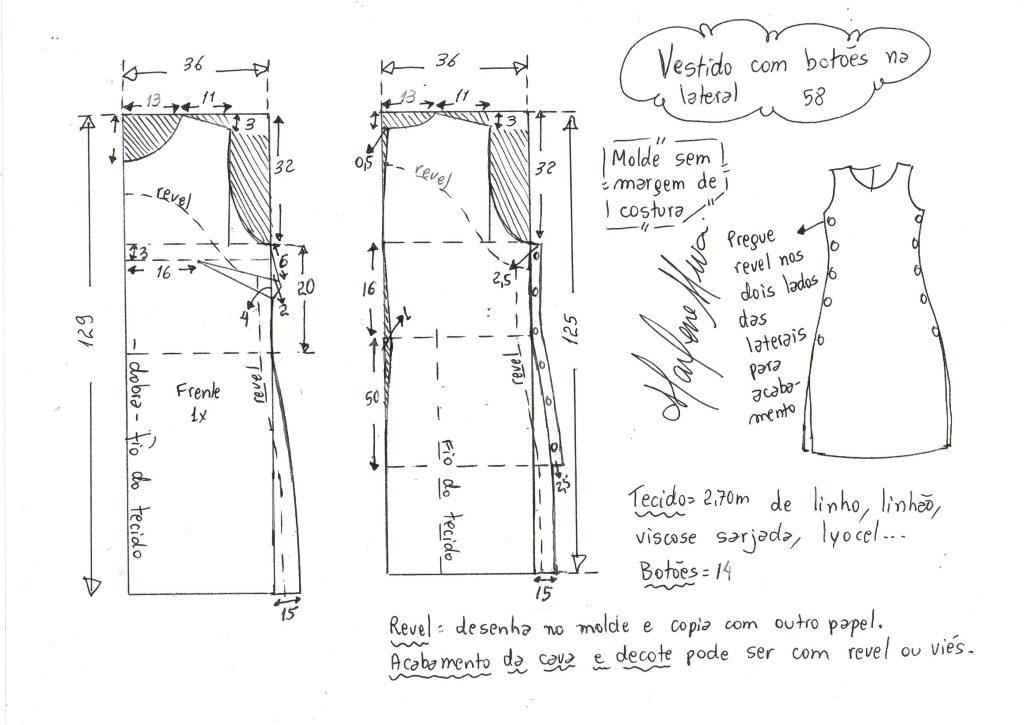 Vestido com botões na
lateral 58
Molde sem
margem de
costura
36
13 11
3
32
revel
3
16
6
2
4
20
129
dobra - fio do tecido
Frente
1x
revel
15
36
13 11
3
0,5
32
revel
2,5
16
1
50
revel
125
Fio do tecido
2,5
15
Marlene Mukai
Pregue
revel nos
dois lados
das
laterais
para
acaba-
mento
Tecido= 2,70m de linho, linhão,
viscose sarjada, lyocel...
Botões= 14
Revel= desenha no molde e copia com outro papel.
Acabamento da cava e decote pode ser com revel ou viés.